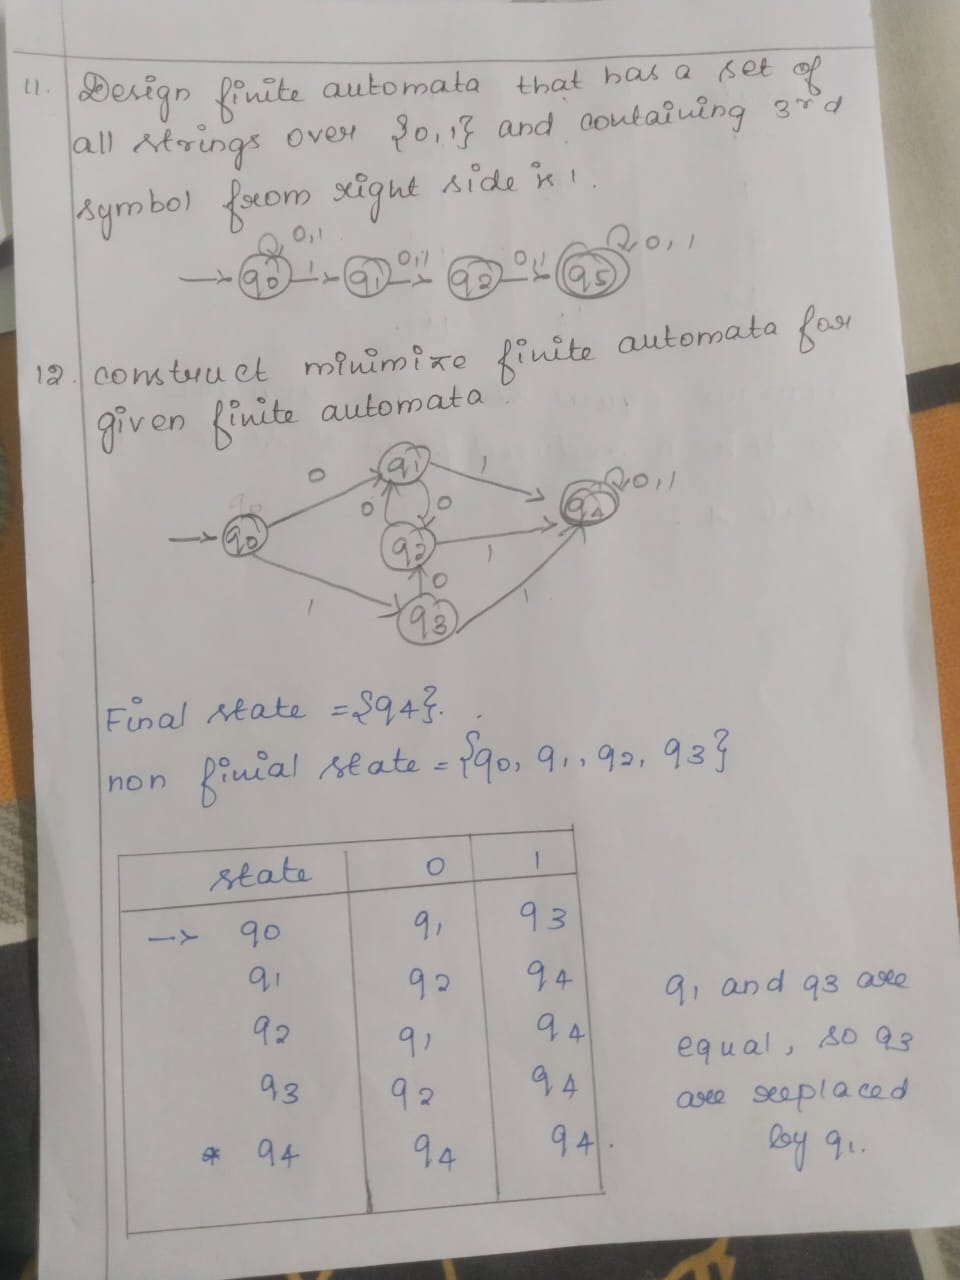 11. Design finite automata that has a set of
all strings over {0,1} and containing 3rd
symbol from right side is 1.
0,1
q0 1 q1 0,1 q2 0,1 q5 0,1
12. construct minimize finite automata for
given finite automata.
q0 0 q1 1 q4 0,1
0 0
q2 1
0
1 q3 1
Final state = {q4}.
non finial state = {q0, q1, q2, q3}
state 0 1
→ q0 q1 q3
q1 q2 q4
q2 q1 q4
q3 q2 q4
* q4 q4 q4.
q1 and q3 are
equal, so q3
are replaced
by q1.